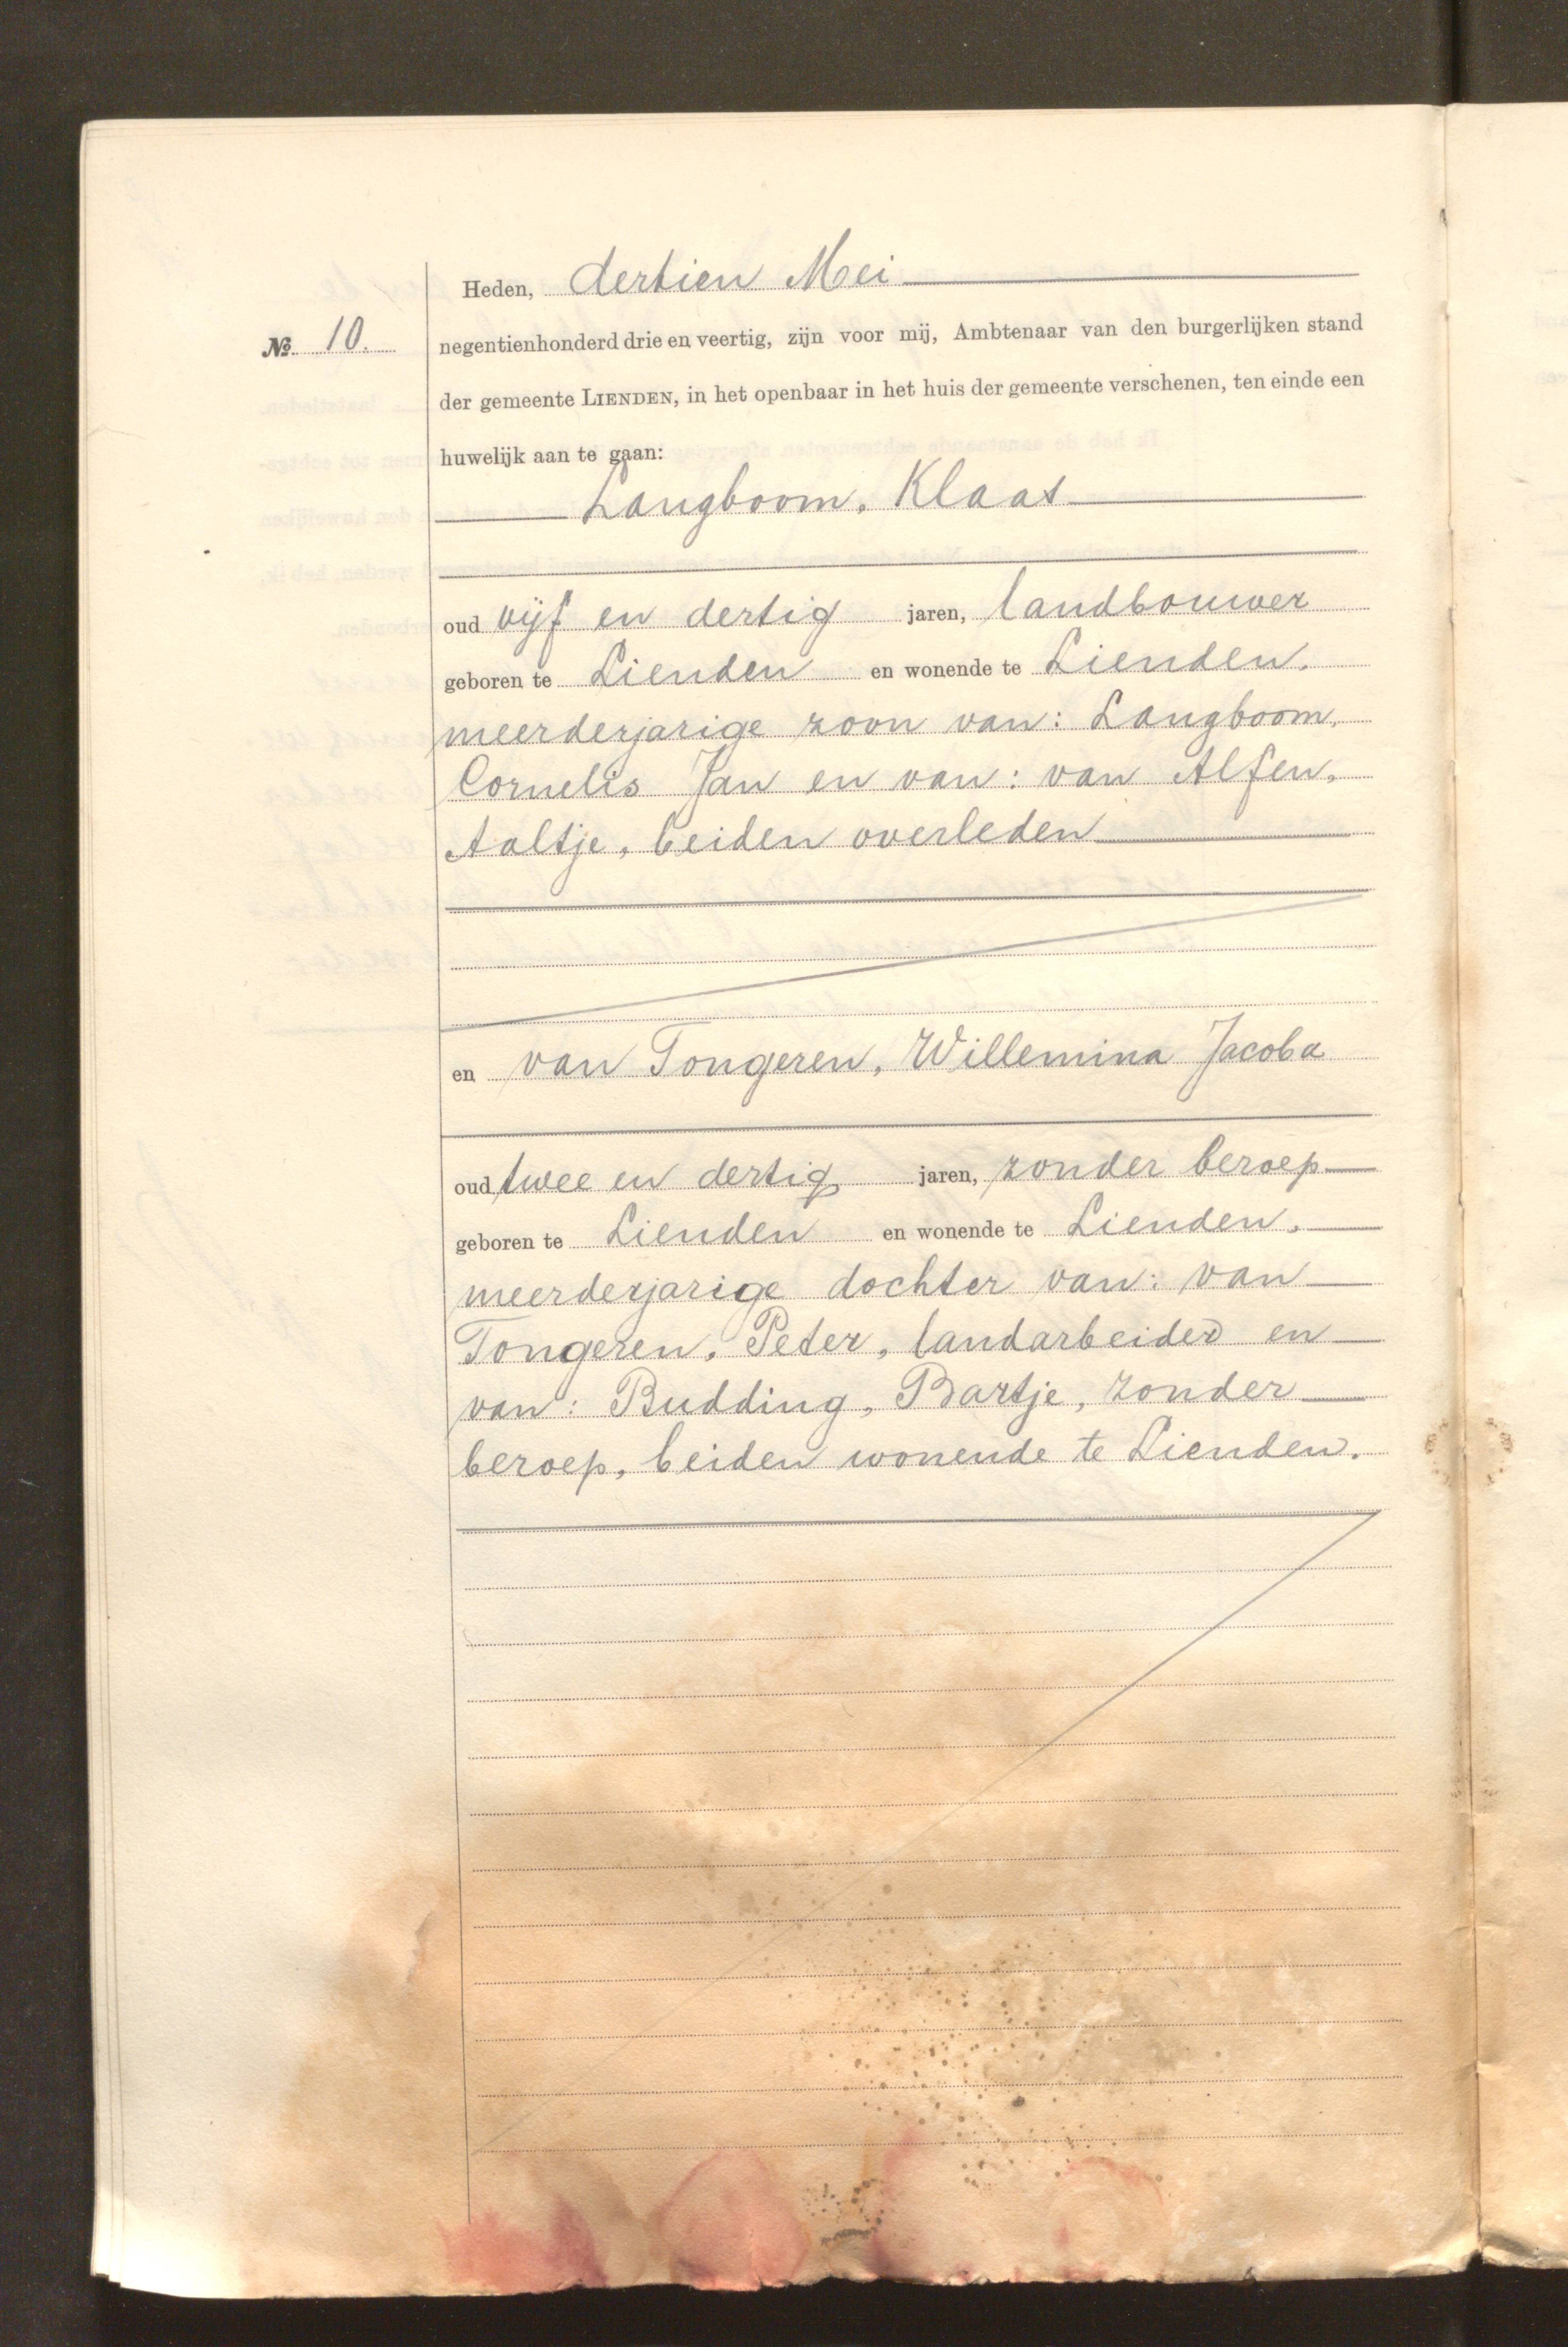 Heden, dertien Mei
No. 10.
negentienhonderd drie en veertig, zijn voor mij, Ambtenaar van den burgerlijken stand
der gemeente LIENDEN, in het openbaar in het huis der gemeente verschenen, ten einde een
huwelijk aan te gaan:
Langboom, Klaas
oud vijf en dertig jaren, landbouwer
geboren te Lienden en wonende te Lienden,
meerderjarige zoon van: Langboom,
Cornelis Jan en van: van Alfen,
Aaltje, beiden overleden
en van Tongeren, Willemina Jacoba
oud twee en dertig jaren, zonder beroep
geboren te Lienden en wonende te Lienden,
meerderjarige dochter van: van
Tongeren, Peter, landarbeider en
van: Budding, Bartje, zonder
beroep, beiden wonende te Lienden.